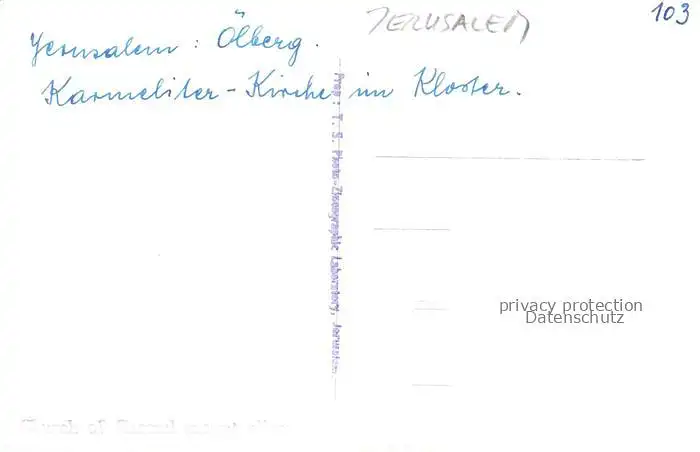 JERUSALEM
103
Jerusalem : Ölberg.
Karmeliter - Kirche im Kloster.
Prop.: T. S. Photo-Zincographic Laboratory, Jerusalem.
privacy protection
Datenschutz